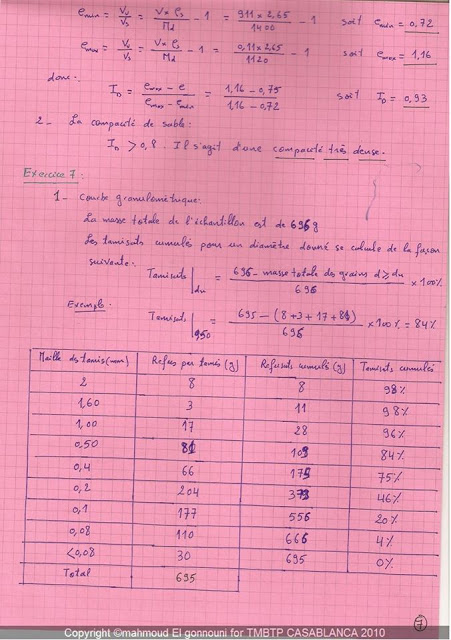 e min = Vv/Vs = V×ρs/Md − 1 = 911×2,65/1400 − 1 soit e min = 0,72
e max = Vv/Vs = V×ρs/Md − 1 = 0,11×2,65/1120 − 1 soit e max = 1,16
donc:
ID = e max − e / e max − e min = 1,16 − 0,75 / 1,16 − 0,72 soit ID = 0,93
2 - La compacité de sable:
ID > 0,8. Il s'agit d'une compacité très dense.
Exercice 7:
1 - Courbe granulométrique:
La masse totale de l'échantillon est de 696g
Les tamisats cumulés pour un diamètre donné se calcule de la façon
suivante:
Tamisats | du = 696 - masse totale des grains d ≥ du / 696 × 100%
Exemple:
Tamisats | 0,50 = 695 - (8+3+17+81) / 696 × 100% = 84%
Maille des tamis (mm) Refus par tamis (g) Refus cumulés (g) Tamisats cumulés
2 8 8 98%
1,60 3 11 98%
1,00 17 28 96%
0,50 81 109 84%
0,4 66 175 75%
0,2 204 379 46%
0,1 177 556 20%
0,08 110 666 4%
<0,08 30 695 0%
Total 695
7
Copyright ©mahmoud El gonnouni for TMBTP CASABLANCA 2010